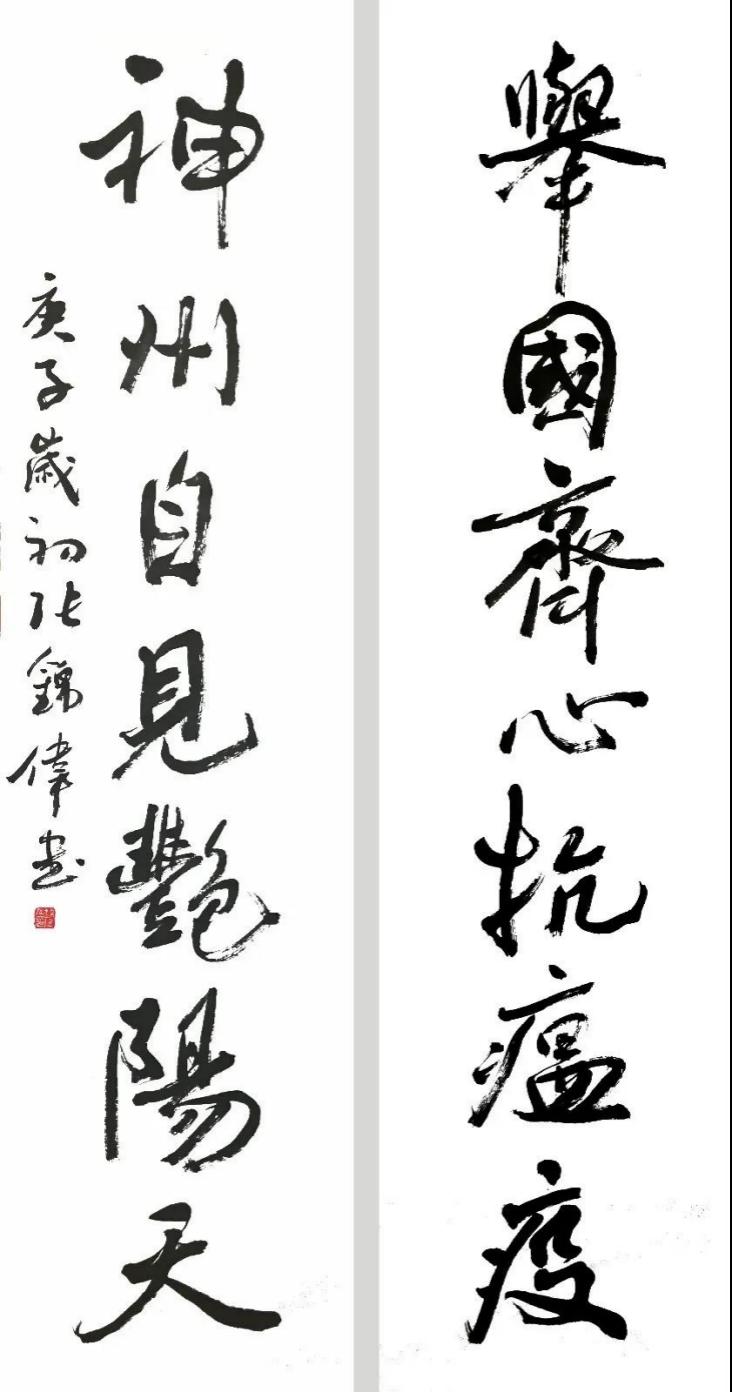 舉國齊心抗瘟疫
神州自見艷陽天
庚子歲初張錦偉書